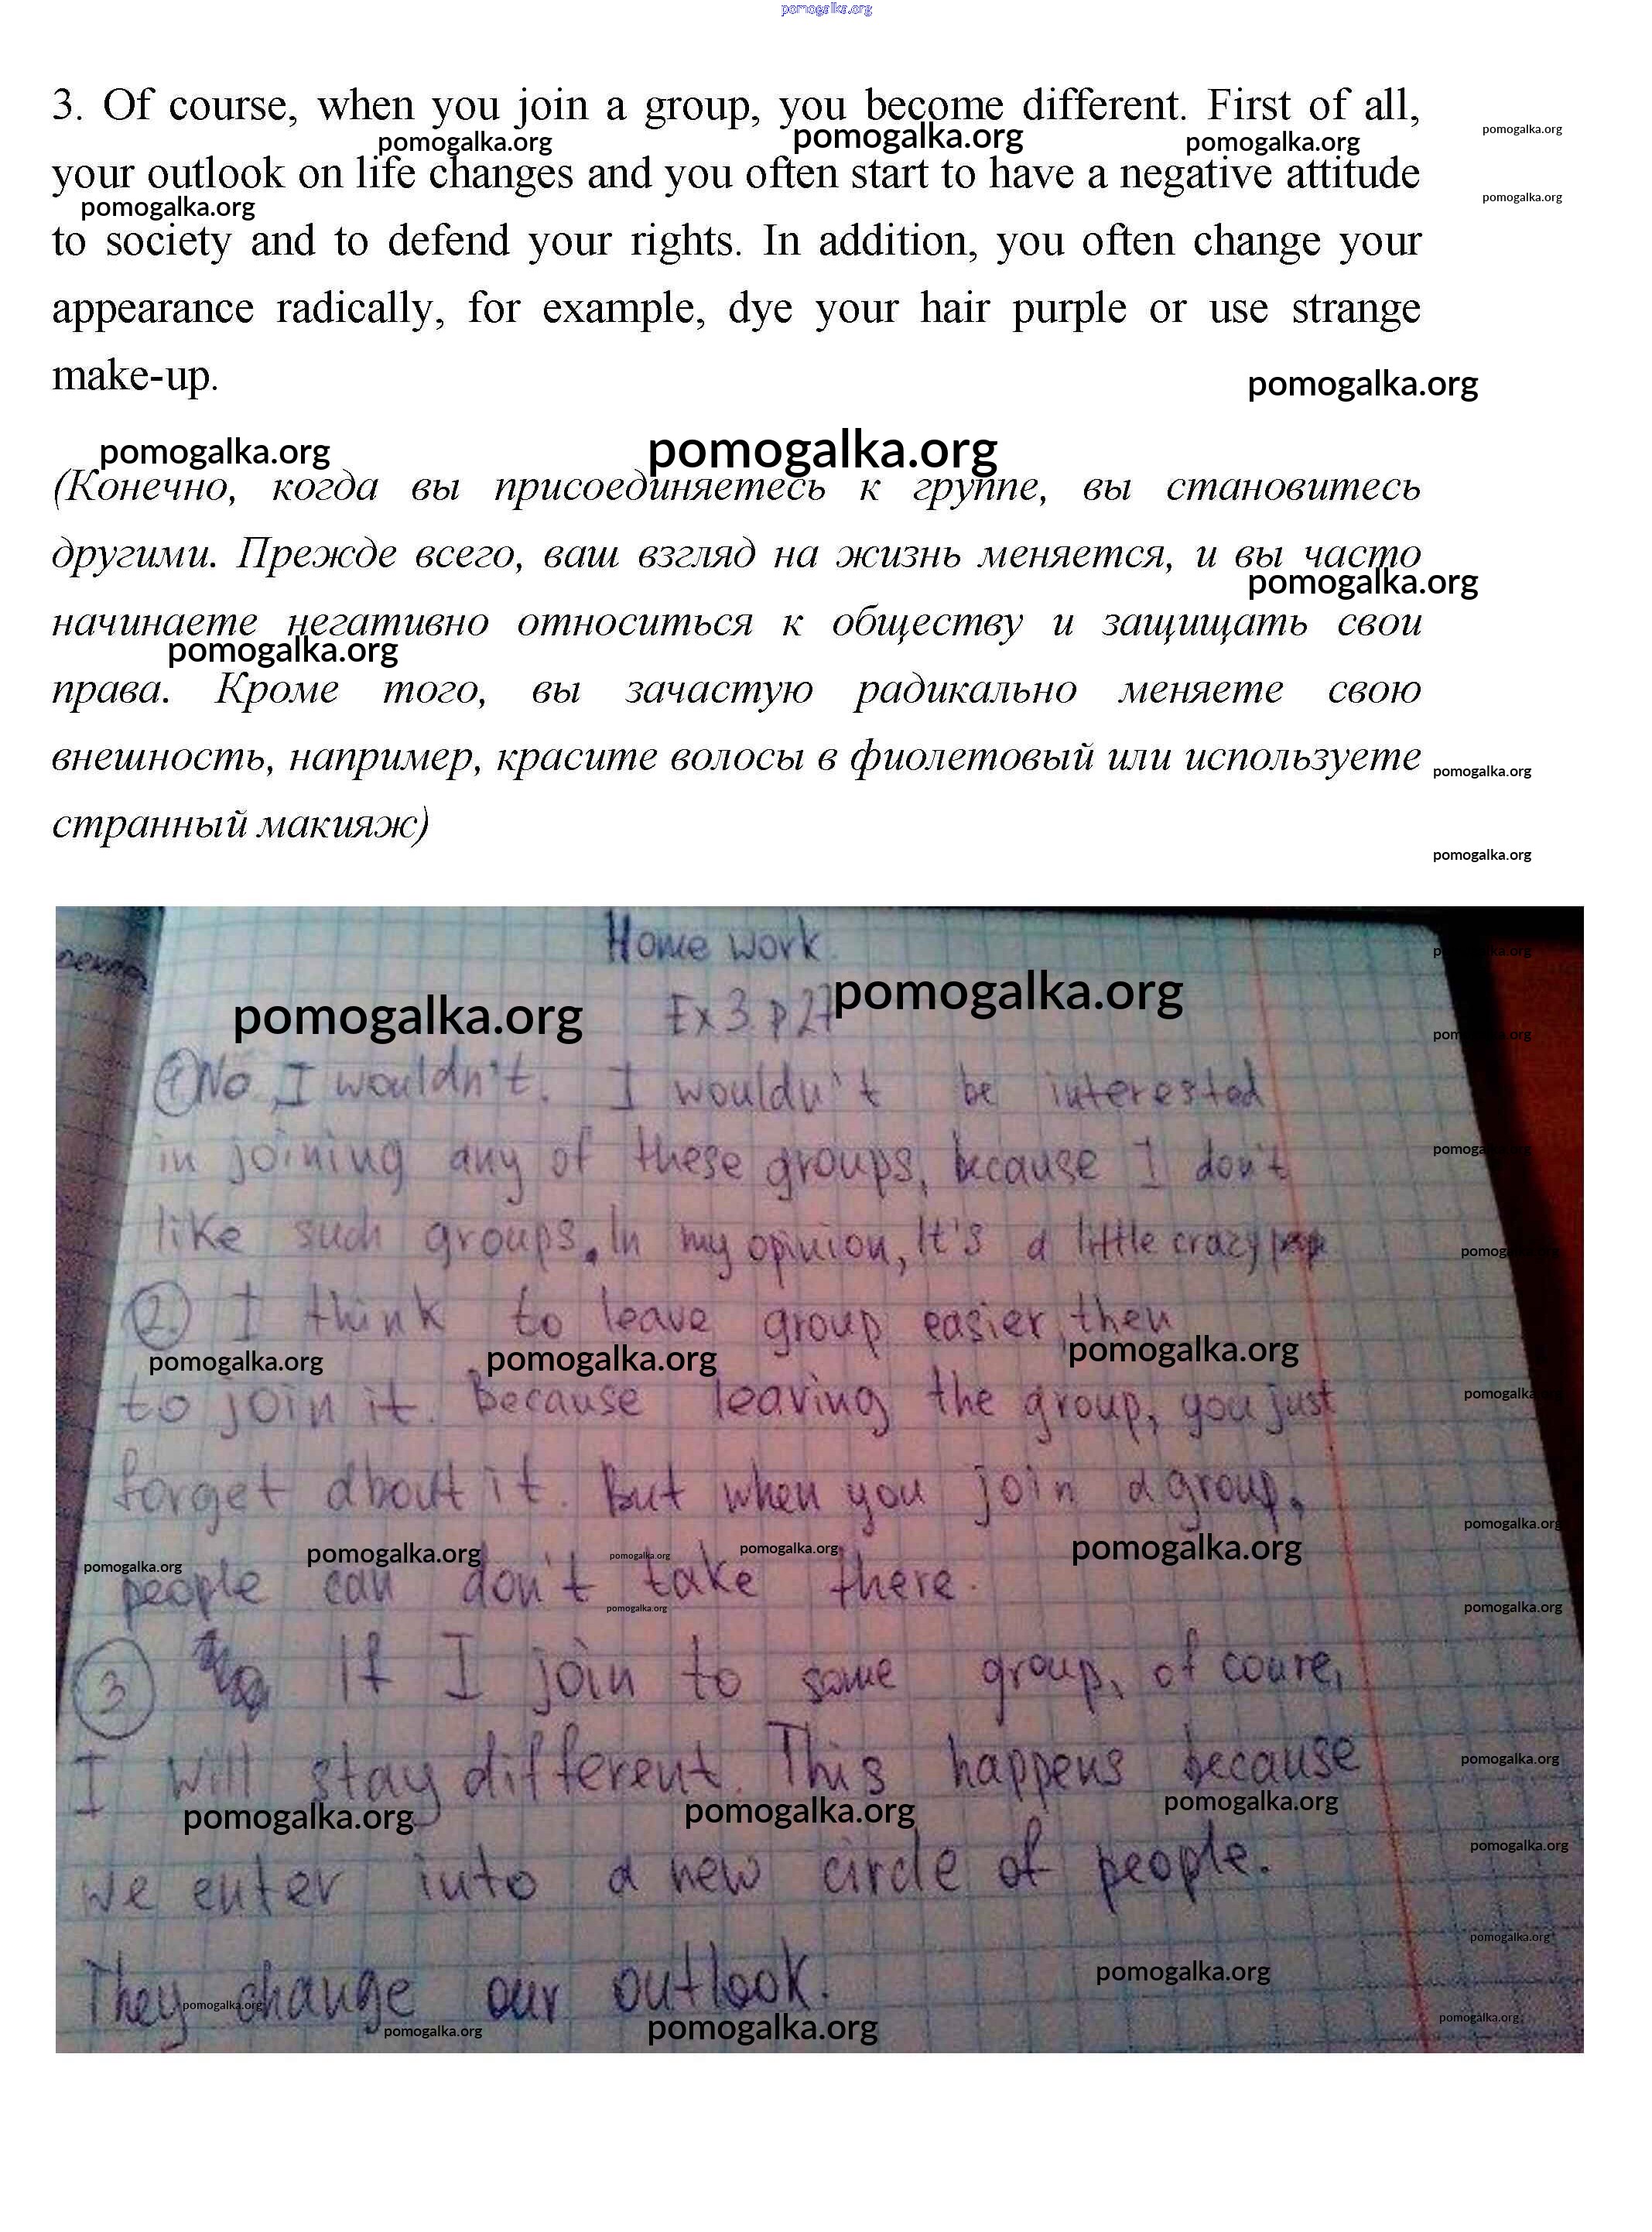 pomogalka.org
3. Of course, when you join a group, you become different. First of all,
pomogalka.org pomogalka.org pomogalka.org pomogalka.org
your outlook on life changes and you often start to have a negative attitude
pomogalka.org pomogalka.org
to society and to defend your rights. In addition, you often change your
appearance radically, for example, dye your hair purple or use strange
make-up.
pomogalka.org
pomogalka.org pomogalka.org
(Конечно, когда вы присоединяетесь к группе, вы становитесь
другими. Прежде всего, ваш взгляд на жизнь меняется, и вы часто
pomogalka.org
начинаете негативно относиться к обществу и защищать свои
pomogalka.org
права. Кроме того, вы зачастую радикально меняете свою
внешность, например, красите волосы в фиолетовый или используете
pomogalka.org
странный макияж)
pomogalka.org
Home work.
pomogalka.org pomogalka.org
Ex 3 p 27
pomogalka.org
1 No, I wouldn't. I wouldn't be interested
in joining any of these groups, because I don't
pomogalka.org
like such groups. In my opinion, It's a little crazy
pomogalka.org
2. I think to leave group easier then
pomogalka.org pomogalka.org pomogalka.org
to join it. Because leaving the group, you just
pomogalka.org
forget about it. But when you join a group,
pomogalka.org
pomogalka.org pomogalka.org pomogalka.org pomogalka.org pomogalka.org
people can don't take there.
pomogalka.org pomogalka.org
3 If I join to some group, of coure,
I will stay different. This happens because
pomogalka.org
pomogalka.org pomogalka.org pomogalka.org
we enter into a new circle of people.
pomogalka.org
pomogalka.org
They change our outlook.
pomogalka.org
pomogalka.org pomogalka.org pomogalka.org pomogalka.org